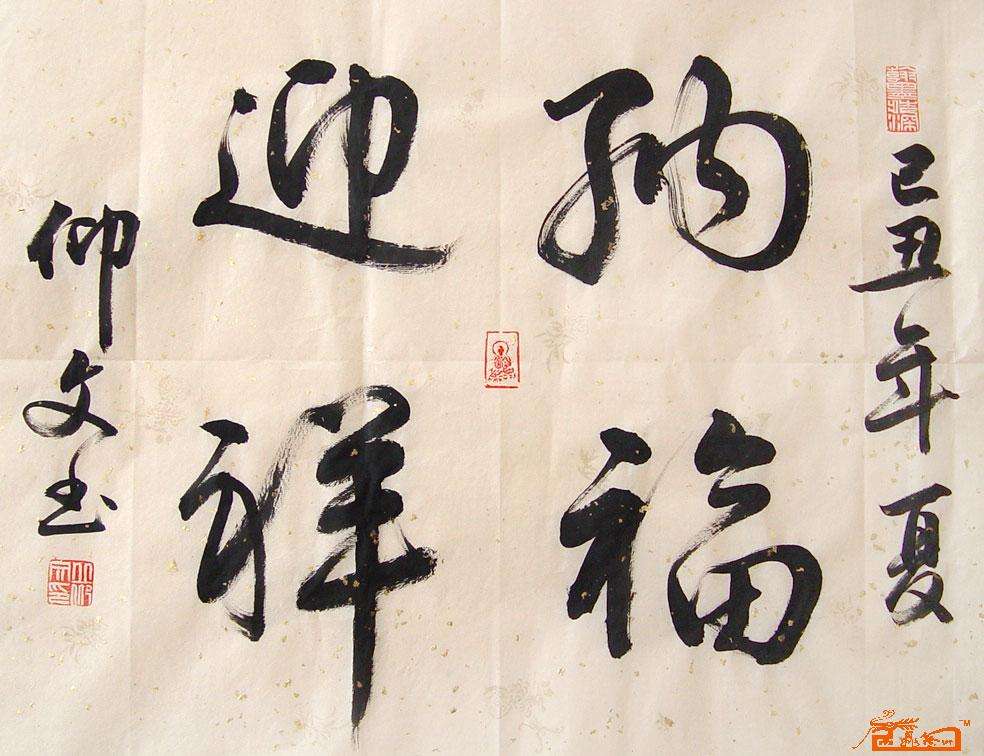 己丑年夏
纳福
迎祥
仰文书